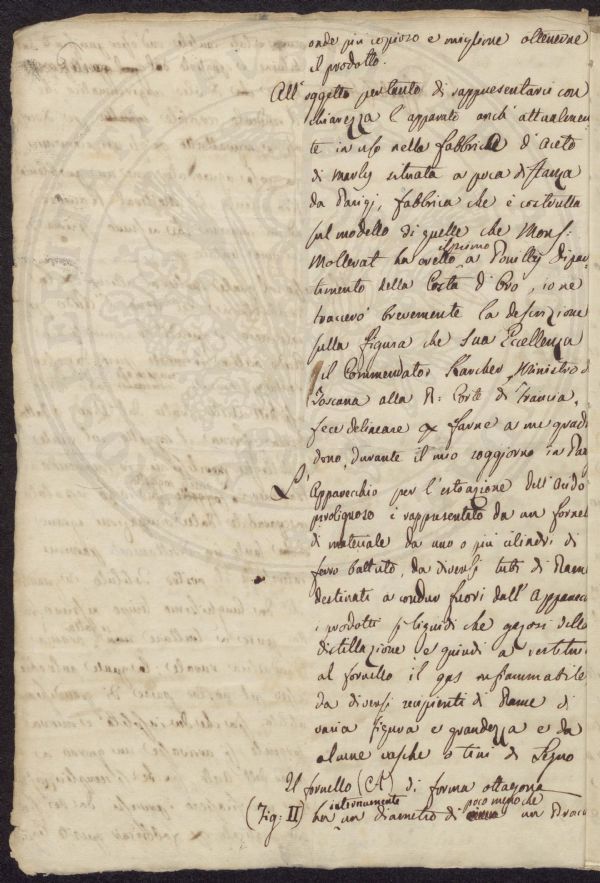 onde più copioso e migliore ottenerne
il prodotto.
All' oggetto pertanto di rappresentarvi con
chiarezza l' apparato anch' attualmen
te in uso nella fabbrica d' Aceto
di Marly situata a poca distanza
da Parigi, fabbrica che è costrutta
sul modello di quelle che Mons:
Mollerat ha eretto il primo a Pouilly dipar
timento della Costa d' Oro, io ne
traccerò brevemente la descrizione
sulla figura che Sua Eccellenza
il Commendator Karcher Ministro d
Toscana alla R: Corte di Francia,
fece delineare per farne a me gradi
dono, durante il mio soggiorno in Par
L' Apparecchio per l' estrazione dell' Acido
pirolignoso è rappresentato da un fornel
di materiale da uno o più cilindri di
ferro battuto, da diversi tubi di Rame
destinati a condur fuori dall' Apparec
i prodotti sì liquidi che gazosi della
distillazione e quindi a restituir
al fornello il gas infiammabile
da diversi recipienti di Rame di
varia figura e grandezza e da
alcune vasche o tini di Legno
Il fornello (A) di forma ottagona
(Fig: II) ha internamente un diametro di poco meno che un Bracc